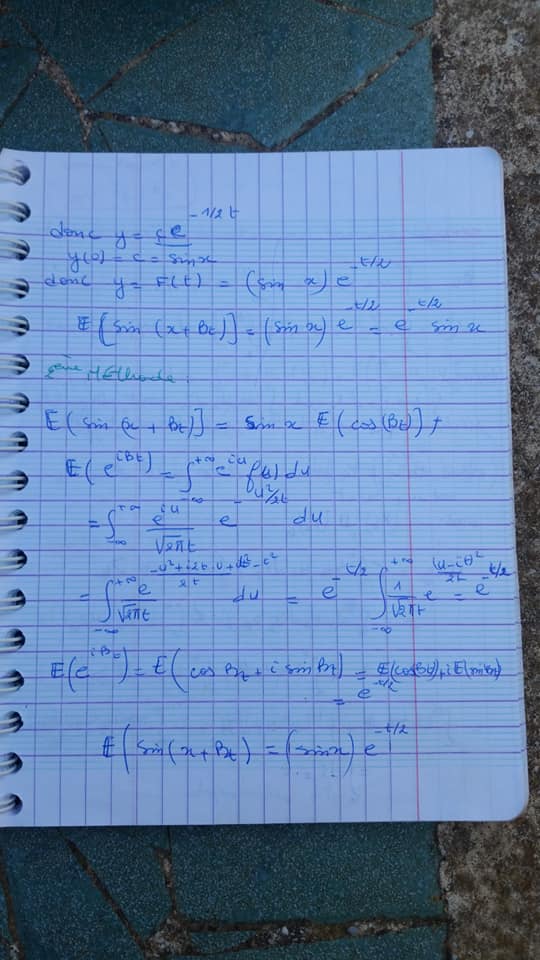 donc y = c e^{-1/2 t}
y(0) = c = sin x
donc y = F(t) = (sin x) e^{-t/2}
E[sin (x + Bt)] = (sin x) e^{-t/2} = e^{-t/2} sin x
2ème Méthode :
E(sin(x + Bt)] = sin x E(cos(Bt)] +
E(e^{iBt}) = ∫_{-∞}^{+∞} e^{iu} f(u) du
= ∫_{-∞}^{+∞} e^{iu}/√2πt e^{-u²/2t} du
= ∫_{-∞}^{+∞} e^{} /√2πt du = e^{-t/2} ∫_{-∞}^{+∞} 1/√2πt e^{(u-it)²/2t} = e^{-t/2}
E(e^{iBt}) = E(cos Bt + i sin Bt) = E(cos Bt) + i E(sin Bt)
= e^{-t/2}
E(sin(x + Bt) = (sin x) e^{-t/2}